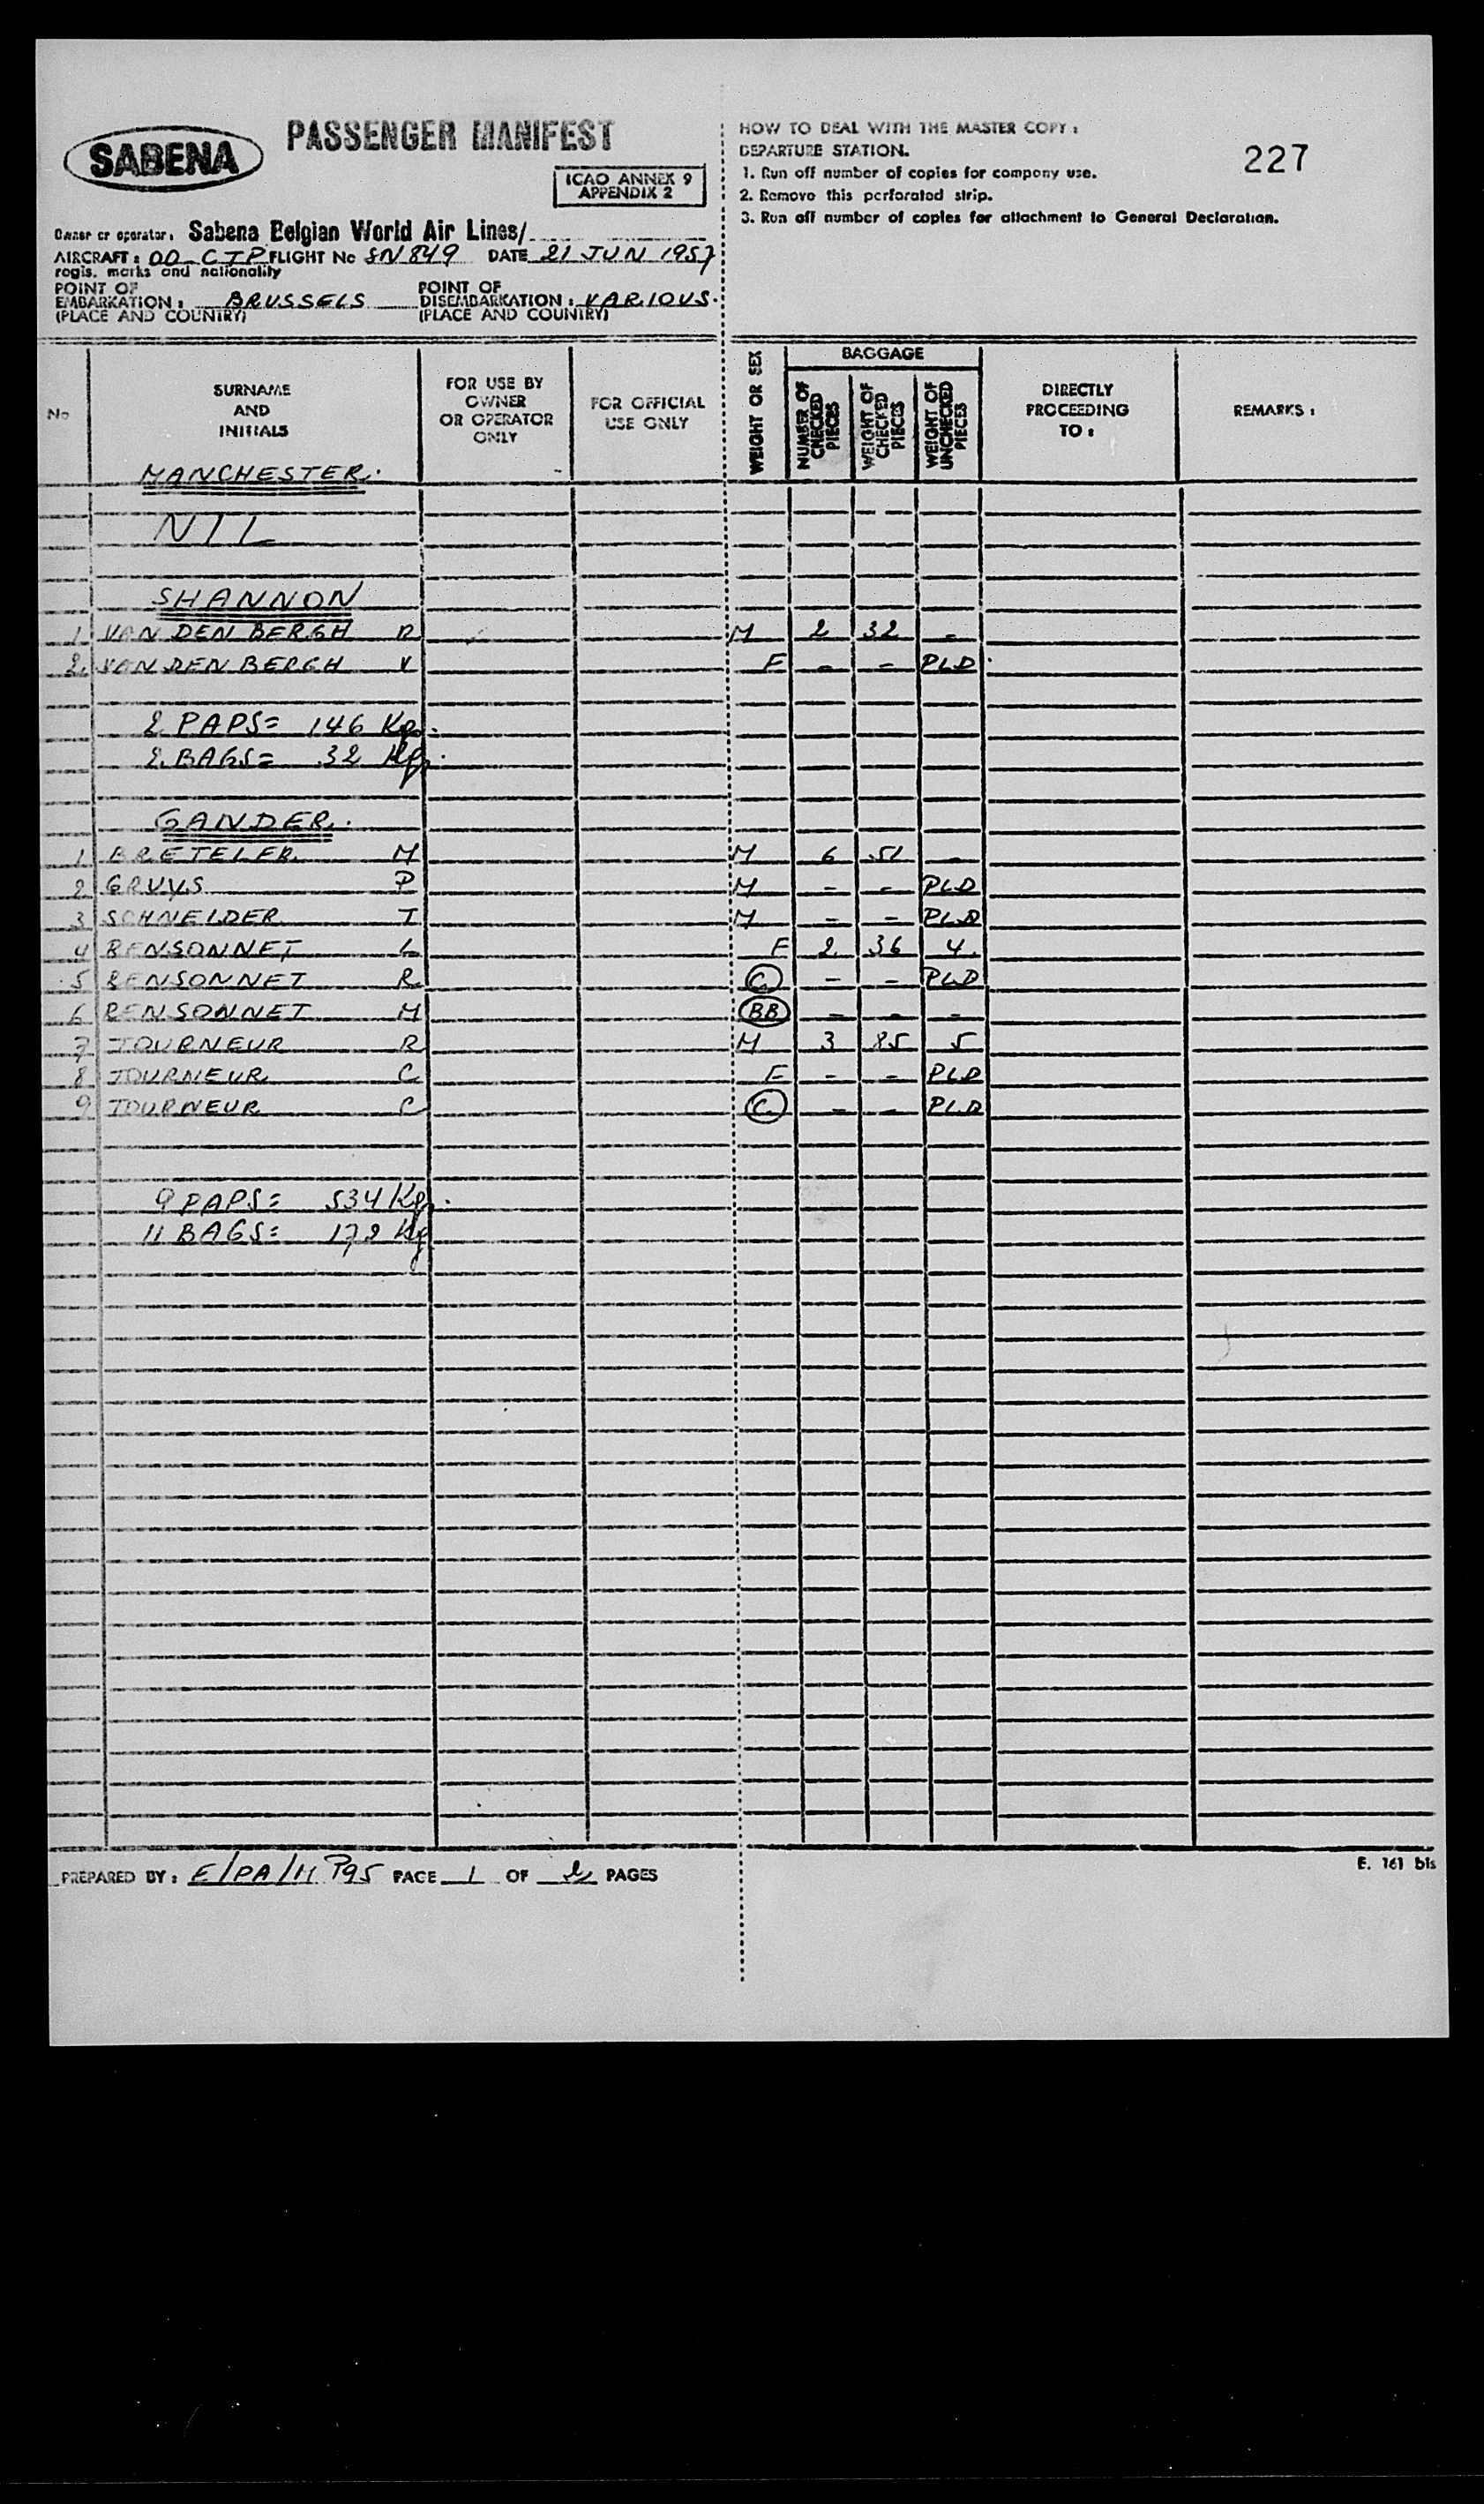 SABENA
PASSENGER MANIFEST
ICAO ANNEX 9
APPENDIX 2
HOW TO DEAL WITH THE MASTER COPY :
DEPARTURE STATION.
1. Run off number of copies for company use.
2. Remove this perforated strip.
3. Run off number of copies for attachment to General Declaration.
227
Owner or operator: Sabena Belgian World Air Lines/
AIRCRAFT : OO-CTP FLIGHT No SN 849 DATE 21 JUN 1957
regis. marks and nationality
POINT OF EMBARKATION : BRUSSELS POINT OF DISEMBARKATION : VARIOUS.
(PLACE AND COUNTRY) (PLACE AND COUNTRY)
No
SURNAME AND INITIALS
FOR USE BY OWNER OR OPERATOR ONLY
FOR OFFICIAL USE ONLY
WEIGHT OR SEX
BAGGAGE
NUMBER OF CHECKED PIECES
WEIGHT OF CHECKED PIECES
WEIGHT OF UNCHECKED PIECES
DIRECTLY PROCEEDING TO :
REMARKS :
MANCHESTER.
NIL
SHANNON
1 VAN DEN BERGH R M 2 32 -
2. VAN DEN BERGH V F - - PLD
2 PAPS= 146 Kg.
2 BAGS= 32 Kg.
GANDER.
1 BRETELER M M 6 51 -
2 GRUYS P M - - PLD
3 SCHNEIDER T M - - PLD
4 RENSONNET L F 2 36 4.
5 RENSONNET R C - - PLD
6 RENSONNET M BB - - -
7 TOURNEUR R M 3 85 5
8 TOURNEUR C F - - PLD
9 TOURNEUR C C - - PLD
9 PAPS= 534 Kg.
11 BAGS= 172 Kg
PREPARED BY : E/PA/H P95 PAGE 1 OF 2 PAGES
E. 161 bis